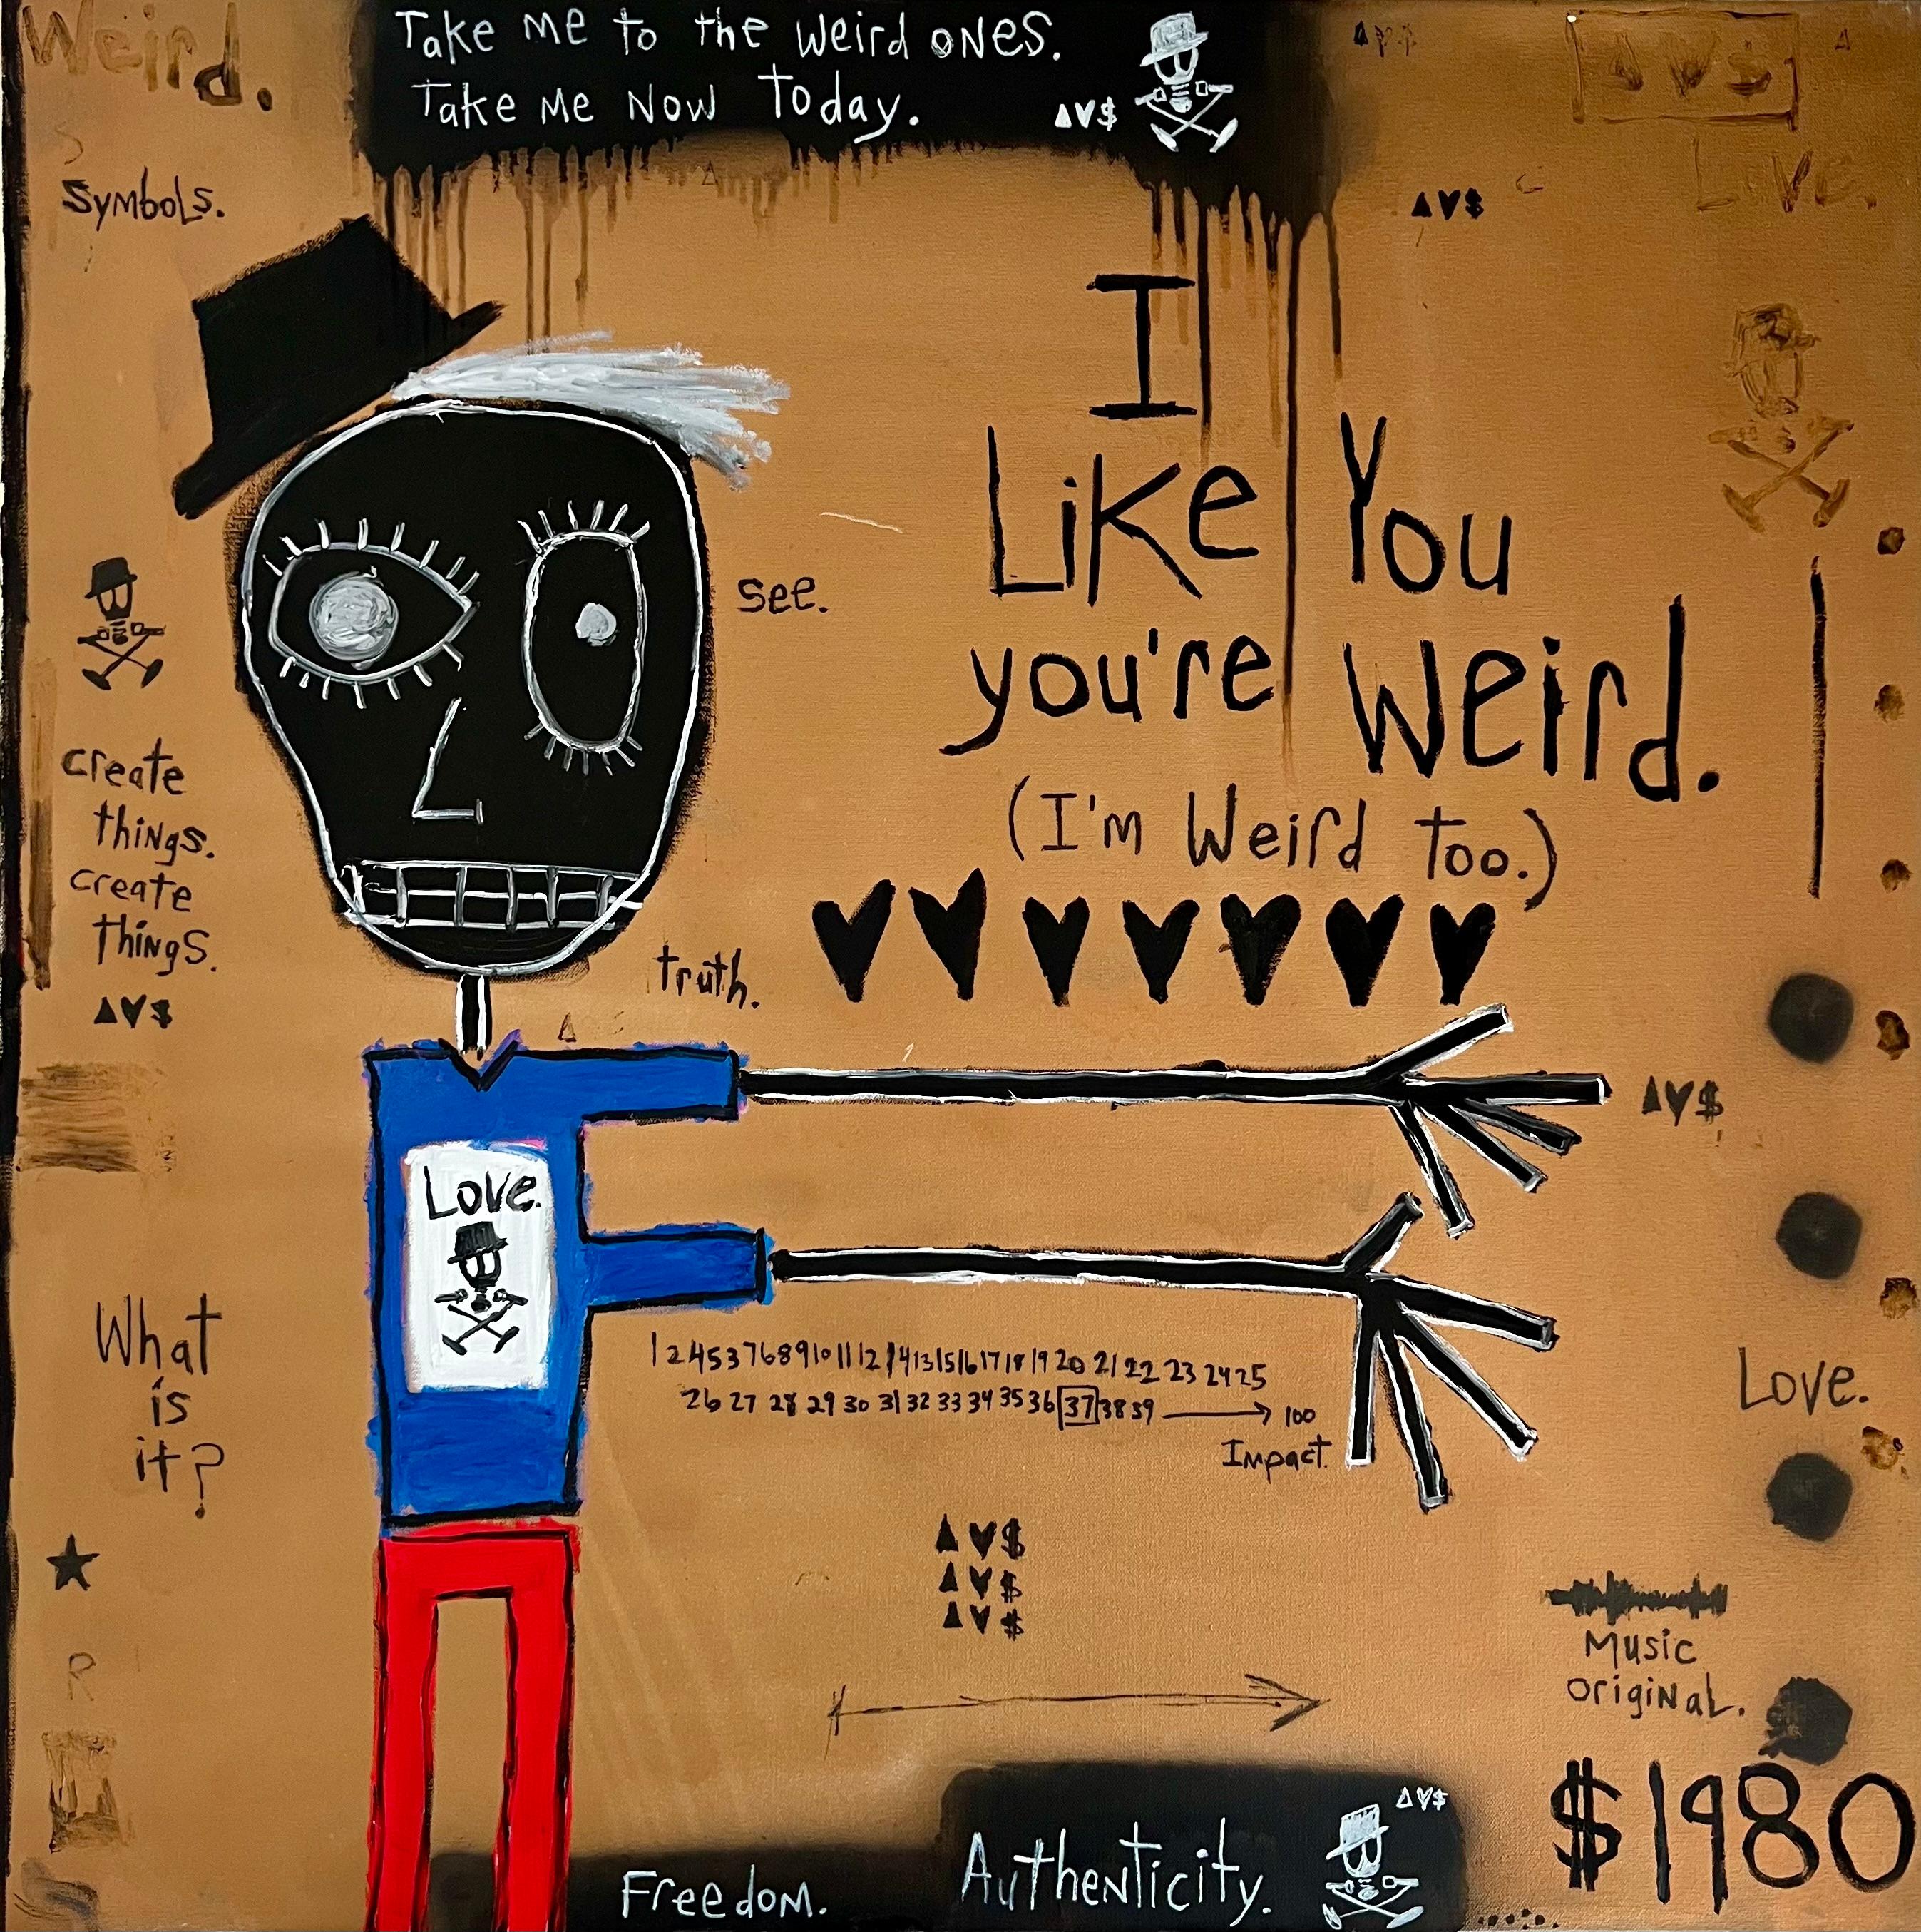 Weird.
Take me to the weird ones.
Take me now today.
Symbols.
LOVE.
I
Like You
you're weird.
(I'm Weird too.)
see.
create
things.
create
things.
truth.
Love.
What
is
it?
1 2 4 5 3 7 6 8 9 10 11 12 14 13 15 16 17 18 19 20 21 22 23 24 25
26 27 28 29 30 31 32 33 34 35 36 37 38 39 → 100
Impact.
Love.
R
Music
original.
$1980
Freedom.
Authenticity.